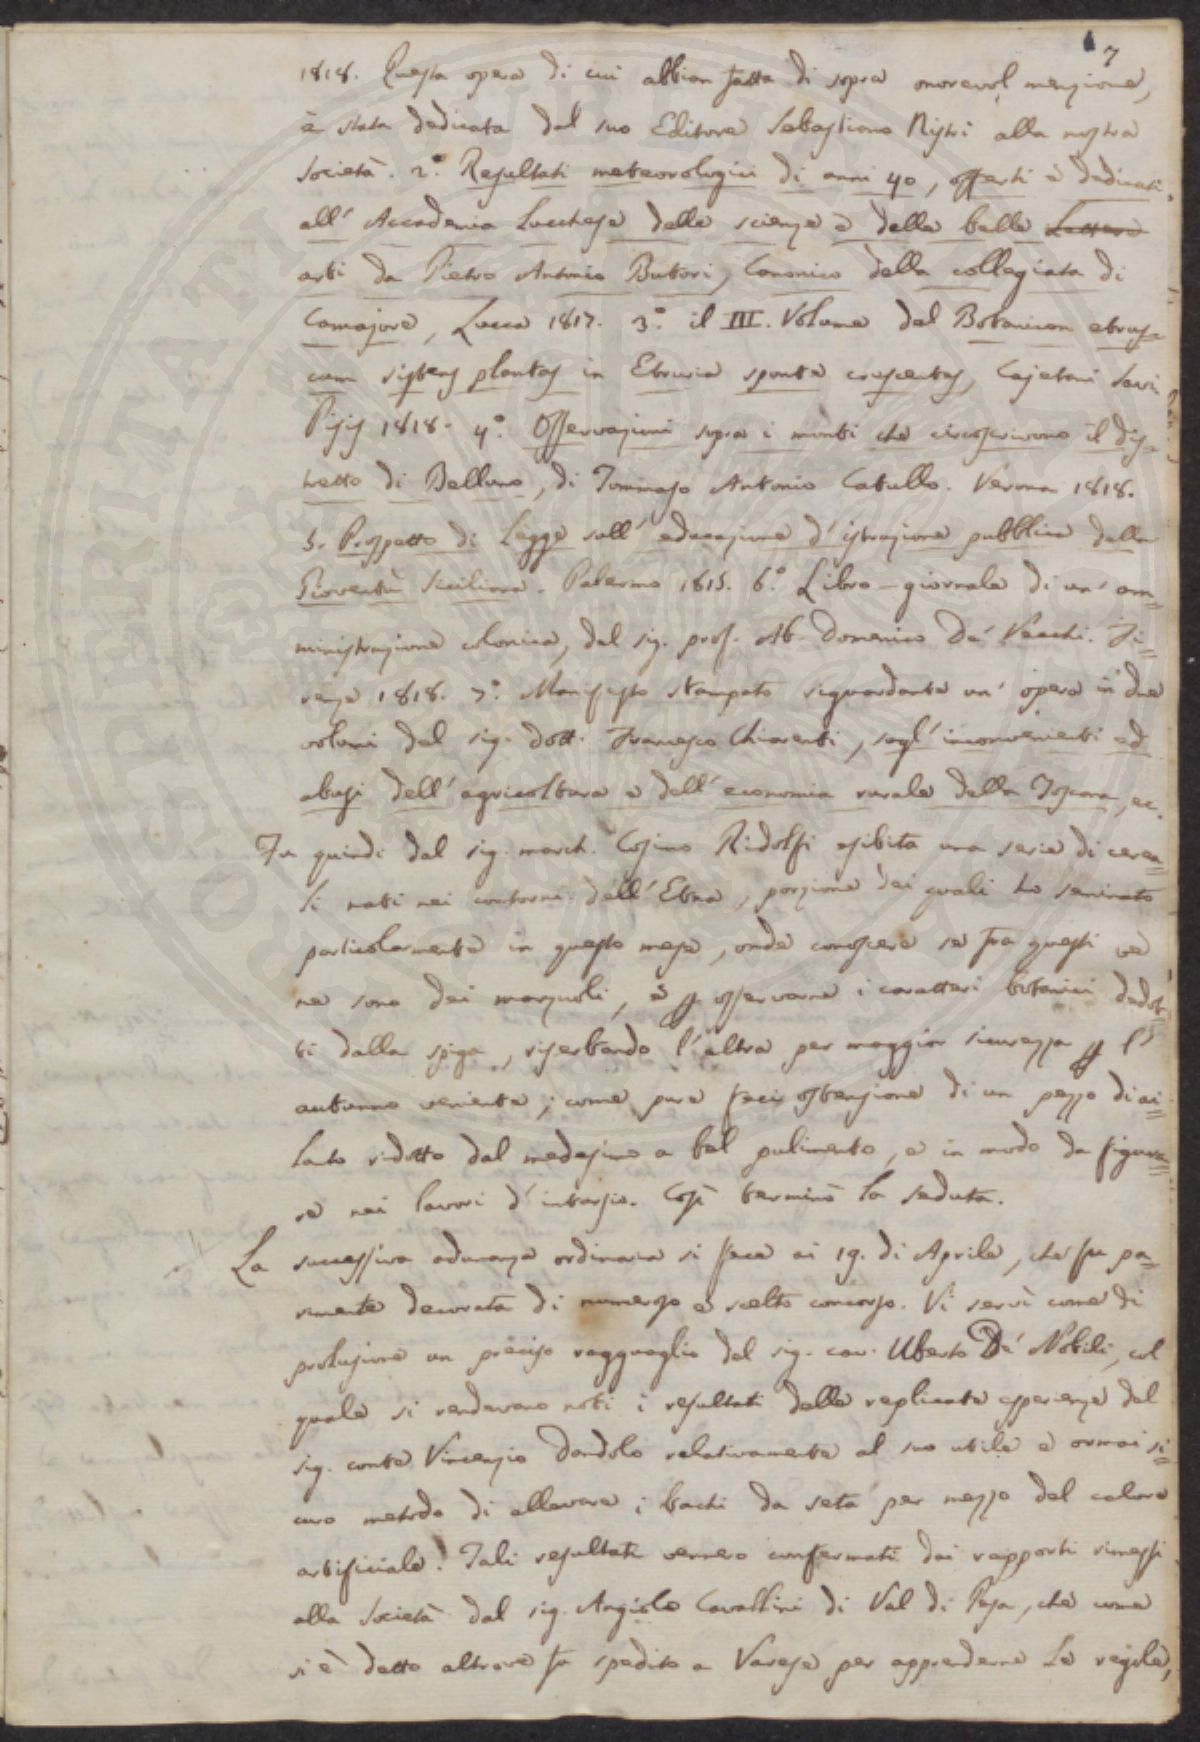 7
1818. Questa opera di cui abbiam fatta di sopra onorevol menzione,
è stata dedicata dal suo Editore Sebastiano Nistri alla nostra
Società. 2.° Resultati meteorologici di anni 40, offerti e dedicati
all' Accademia Lucchese delle scienze e delle belle Lettere
arti da Pietro Antonio Butori, Canonico della collegiata di
Camajore, Lucca 1817. 3.° il III. Volume del Botanicon etrus=
cum sistens plantas in Etruria sponte crescentes, Cajetani Savi
Pisis 1818. 4.° Osservazioni sopra i monti che circoscrivono il dis=
tretto di Belluno, di Tommaso Antonio Catullo. Verona 1818.
5. Prospetto di Legge sull' educazione d' istruzione pubblica della
Gioventù Siciliana. Palermo 1815. 6.° Libro-giornale di un' am=
ministrazione colonica, del sig. prof. Ab. Domenico De' Vecchi. Fi=
renze 1818. 7.° Manifesto stampato riguardante un' opera in due
volumi del sig. dott. Francesco Chiarenti, sugl' inconvenienti ed
abusi dell' agricoltura e dell' economia rurale della Toscana, ec.
Fu quindi dal sig. march. Cosimo Ridolfi esibita una serie di cerea=
li nati nei contorni dell' Etna, porzione dei quali ha seminato
particolarmente in questo mese, onde conoscere se fra questi ve
ne sono dei marzuoli, e p osservarne i caratteri botanici dedot=
ti dalla spiga, riserbando l' altra per maggior sicurezza p l'
autunno veniente; come pure feci ostensione di un pezzo di ai=
lanto ridotto dal medesimo a bel pulimento, e in modo da figura=
re nei lavori d' intarsio. Così terminò la seduta.
La successiva adunanza ordinaria si fece ai 19. di Aprile, che fu pa=
rimente decorata di numeroso e scelto concorso. Vi servì come di
prolusione un preciso ragguaglio del sig. cav. Uberto De' Nobili, col
quale si rendevano noti i resultati delle replicate esperienze del
sig. conte Vincenzio Dandolo relativamente al suo utile e ormai si=
curo metodo di allevare i bachi da seta per mezzo del calore
artificiale. Tali resultati vennero confermati dai rapporti rimessi
alla Società dal sig. Angiolo Cavallini di Val di Pesa, che come
si è detto altrove fu spedito a Varese per apprenderne le regole,